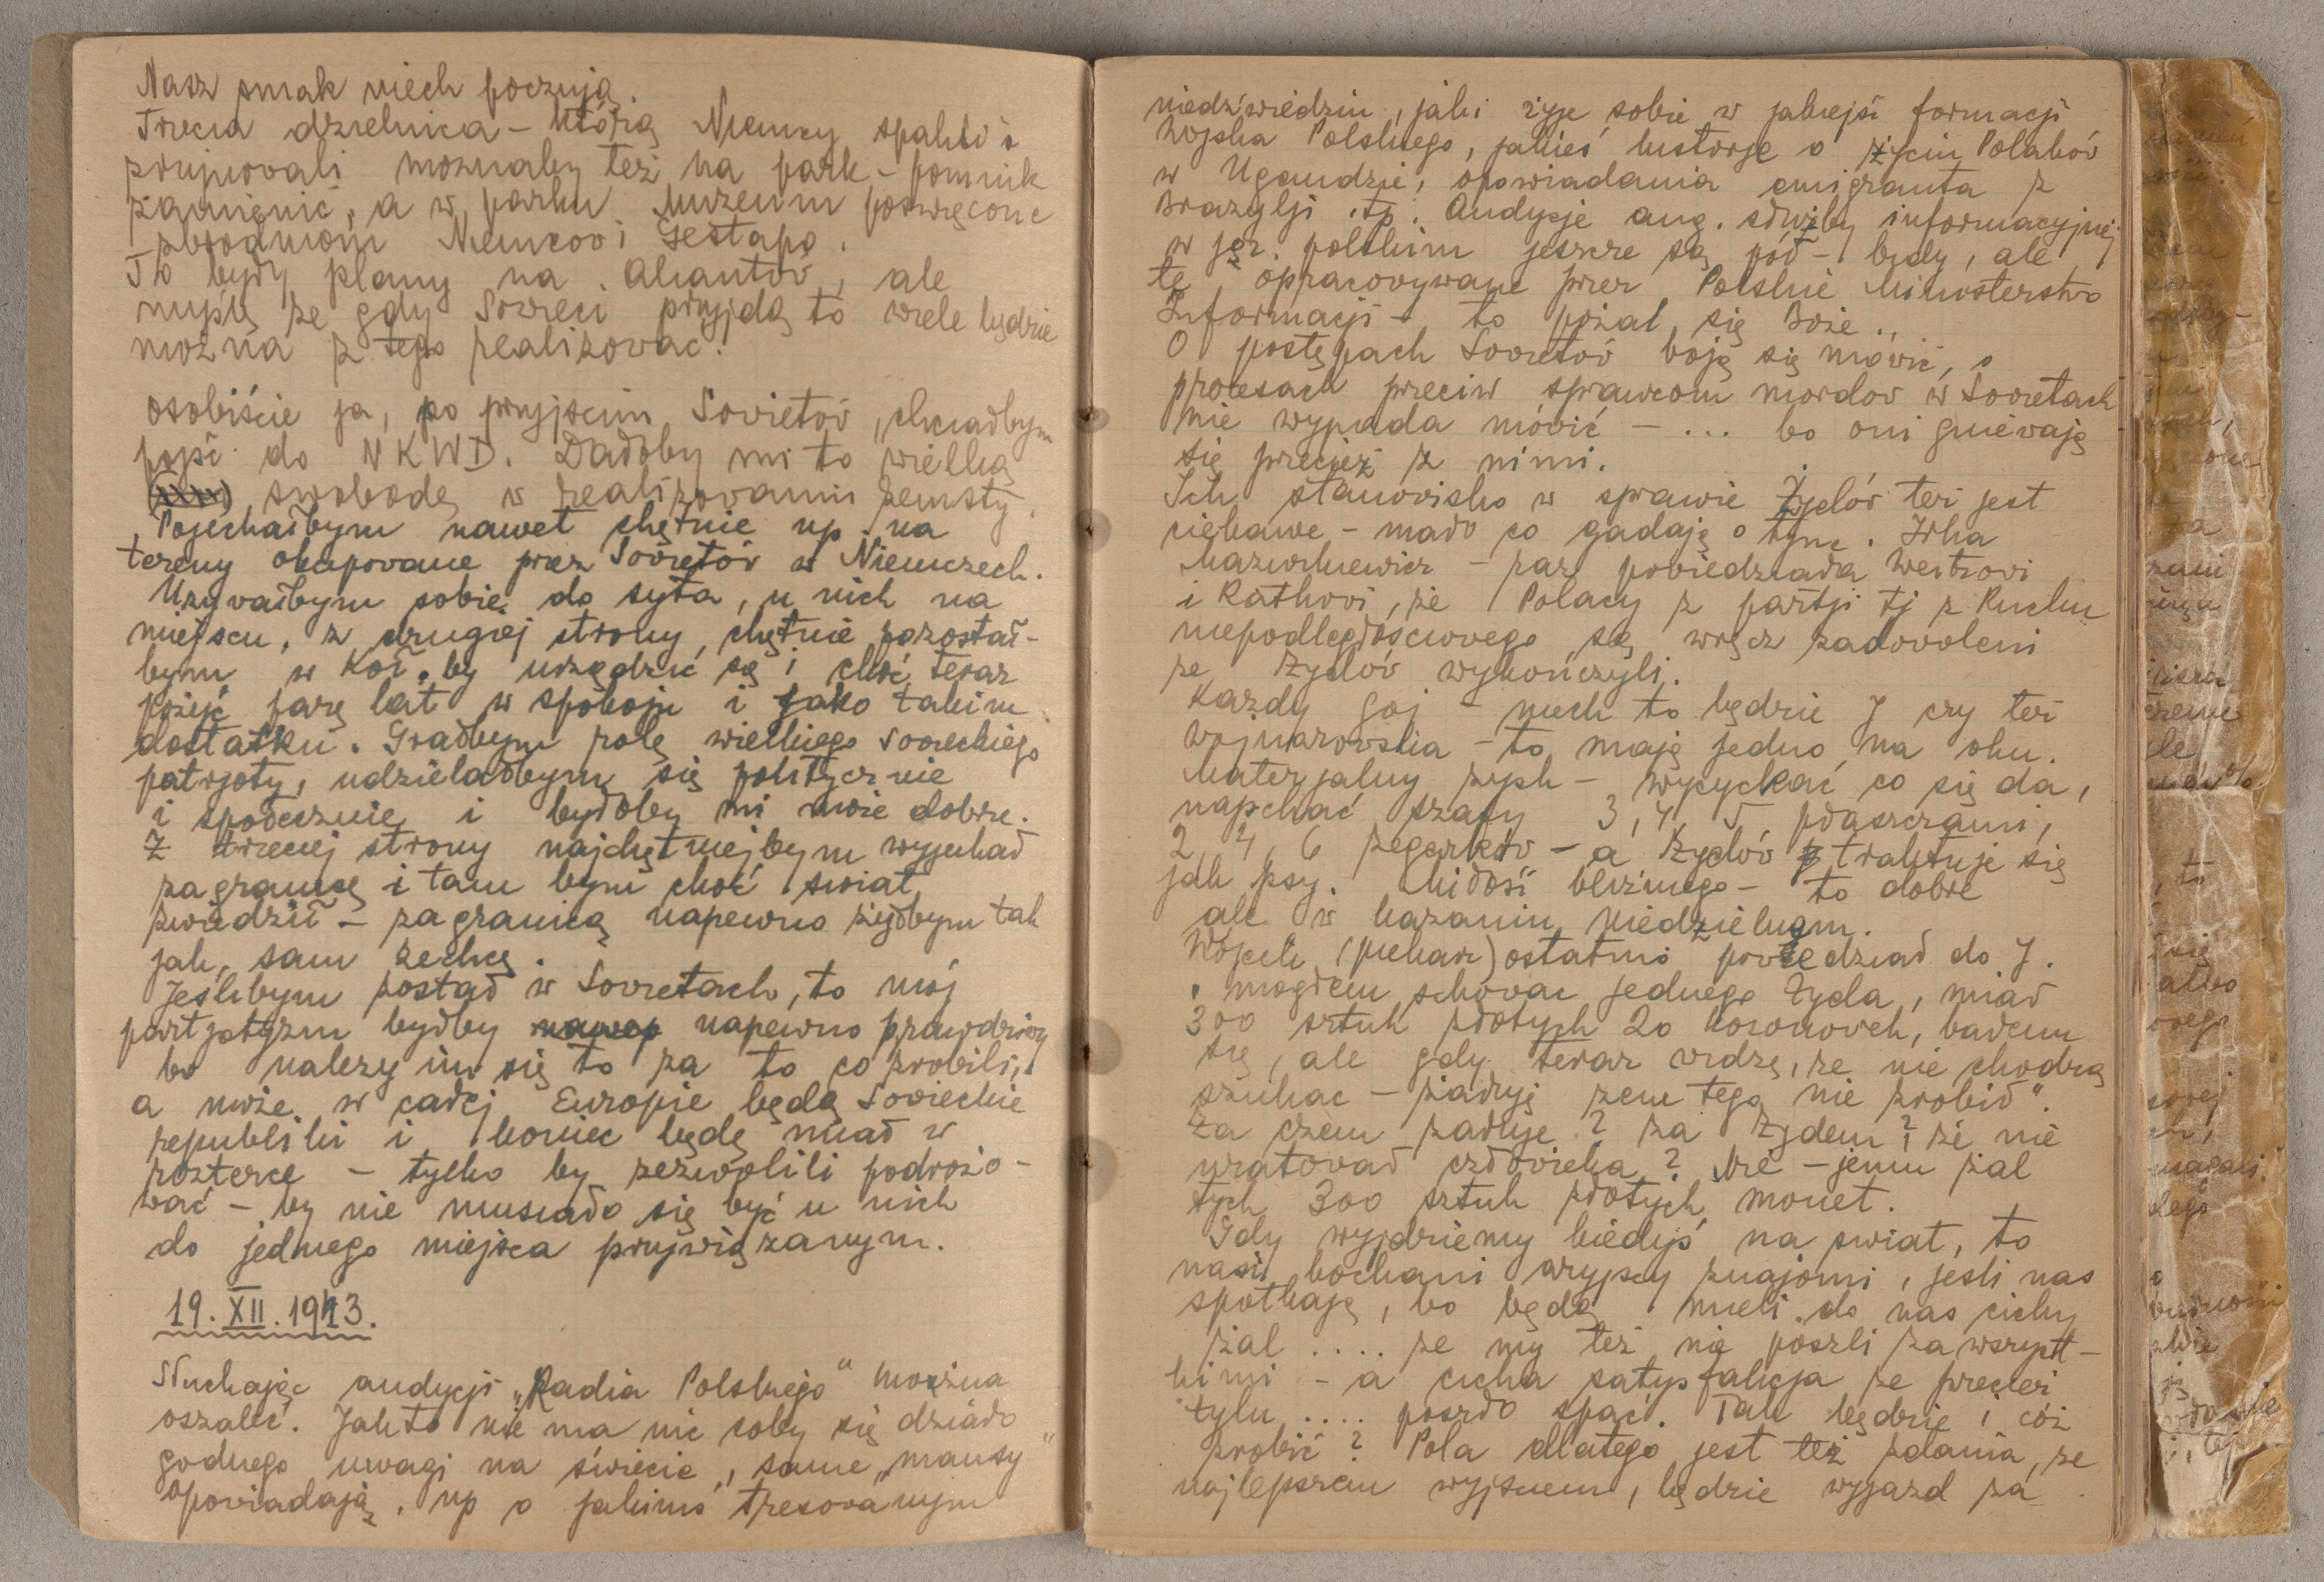 Nasz smak niech poczują.
Trzecia dzielnica - którą Niemcy spalili i
zrujnowali możnaby też na park - pomnik
zamienić, a w parku Muzeum poświęcone
zbrodniom Niemców i Gestapo.
To były plany na Aliantów, ale
myślę że gdy Sowieci przyjdą to wiele będzie
można z tego realizować.
osobiście ja, po przyjściu Sowietów, chciałbym
pójść do NKWD. Dałoby mi to wielką
swobodę w realizowaniu zemsty.
Pojechałbym nawet chętnie np. na
tereny okupowane przez Sowietów w Niemczech.
Używałbym sobie do syta, u nich na
miejscu, z drugiej strony, chętnie pozostał-
bym w Koł. by urządzić się i choć teraz
pożyć parę lat w spokoju i jako takim
dostatku. Grałbym rolę wielkiego sowieckiego
patrjoty, udzielałbym się politycznie
i społecznie i byłoby mi może dobrze.
Z trzeciej strony najchętniejbym wyjechał
zagranicę i tam bym choć świat
zwiedził - zagranicą napewno żyłbym tak
jak sam zechcę.
Jeślibym został w Sowietach, to mój
partjotyzm byłby napewno prawdziwy
bo należy im się to za to co zrobili,
a może w całej Europie będą Sowieckie
republiki i koniec będę miał w
rozterce - tylko by zezwolili podróżo-
wać - by nie musiało się być u nich
do jednego miejsca przywiązanym.
19. XII. 1943.
Słuchając audycji „Radia Polskiego" można
oszaleć. Jak to nie ma nic coby się działo
godnego uwagi na świecie, same „mansy"
opowiadają, np o jakimś tresowanym
niedźwiedziu, jaki żyje sobie w jakiejś formacji
Wojska Polskiego, jakieś historje o życiu Polaków
w Ugandzie, opowiadania emigranta z
Brazylji itp. Audycje ang. służby informacyjnej
w jęz. polskim jeszcze są pół - biedy, ale
te opracowywane przez Polskie Ministerstwo
Informacji - to pożal się Boże.
O postępach Sowietów boją się mówić, o
procesach przeciw sprawcom mordów w Sowietach
nie wypada mówić - ... bo oni gniewają
się przecież z nimi.
Ich stanowisko w sprawie Żydów też jest
ciekawe - mało co gadają o tym. Irka
Mazurkiewicz - raz powiedziała Westrowi
i Rathowi, że Polacy z partji tj z Ruchu
niepodległościowego są wręcz zadowoleni
że Żydów wykończyli.
Każdy goj - niech to będzie J czy też
Wojnarowska - to mają jedno na oku.
Materjalny zysk - wycyckać co się da,
napchać szafy 3, 4, 5 płaszczami,
2, 4, 6 zegarków - a Żydów traktuje się
jak psy. Miłość bliźniego - to dobre
ale w kazaniu niedzielnym.
Wójcik (piekarz) ostatnio powiedział do J.
„mogłem schować jednego Żyda, miał
300 sztuk złotych 20 koronówek, bałem
się, ale gdy teraz widzę, że nie chodzą
szukać - żałuję żem tego nie zrobił".
Za czem żałuje? za Żydem? że nie
uratował człowieka? Nie - jemu żal
tych 300 sztuk złotych monet.
Gdy wyjdziemy kiedyś na świat, to
nasi kochani aryjscy znajomi, jeśli nas
spotkają, to będą mieli do nas cichy
żal .... że my też nie poszli za wszyst-
kimi - a cicha satysfakcja że przecież
tylu .... poszło spać. Tak będzie i cóż
zrobić? Pola dlatego jest też zdania, że
najlepszem wyjściem, będzie wyjazd za